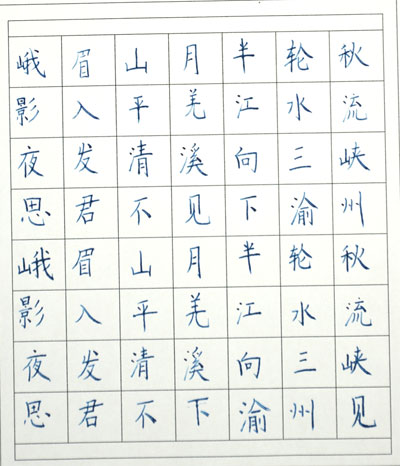 峨眉山月半轮秋
影入平羌江水流
夜发清溪向三峡
思君不见下渝州
峨眉山月半轮秋
影入平羌江水流
夜发清溪向三峡
思君不下渝州见